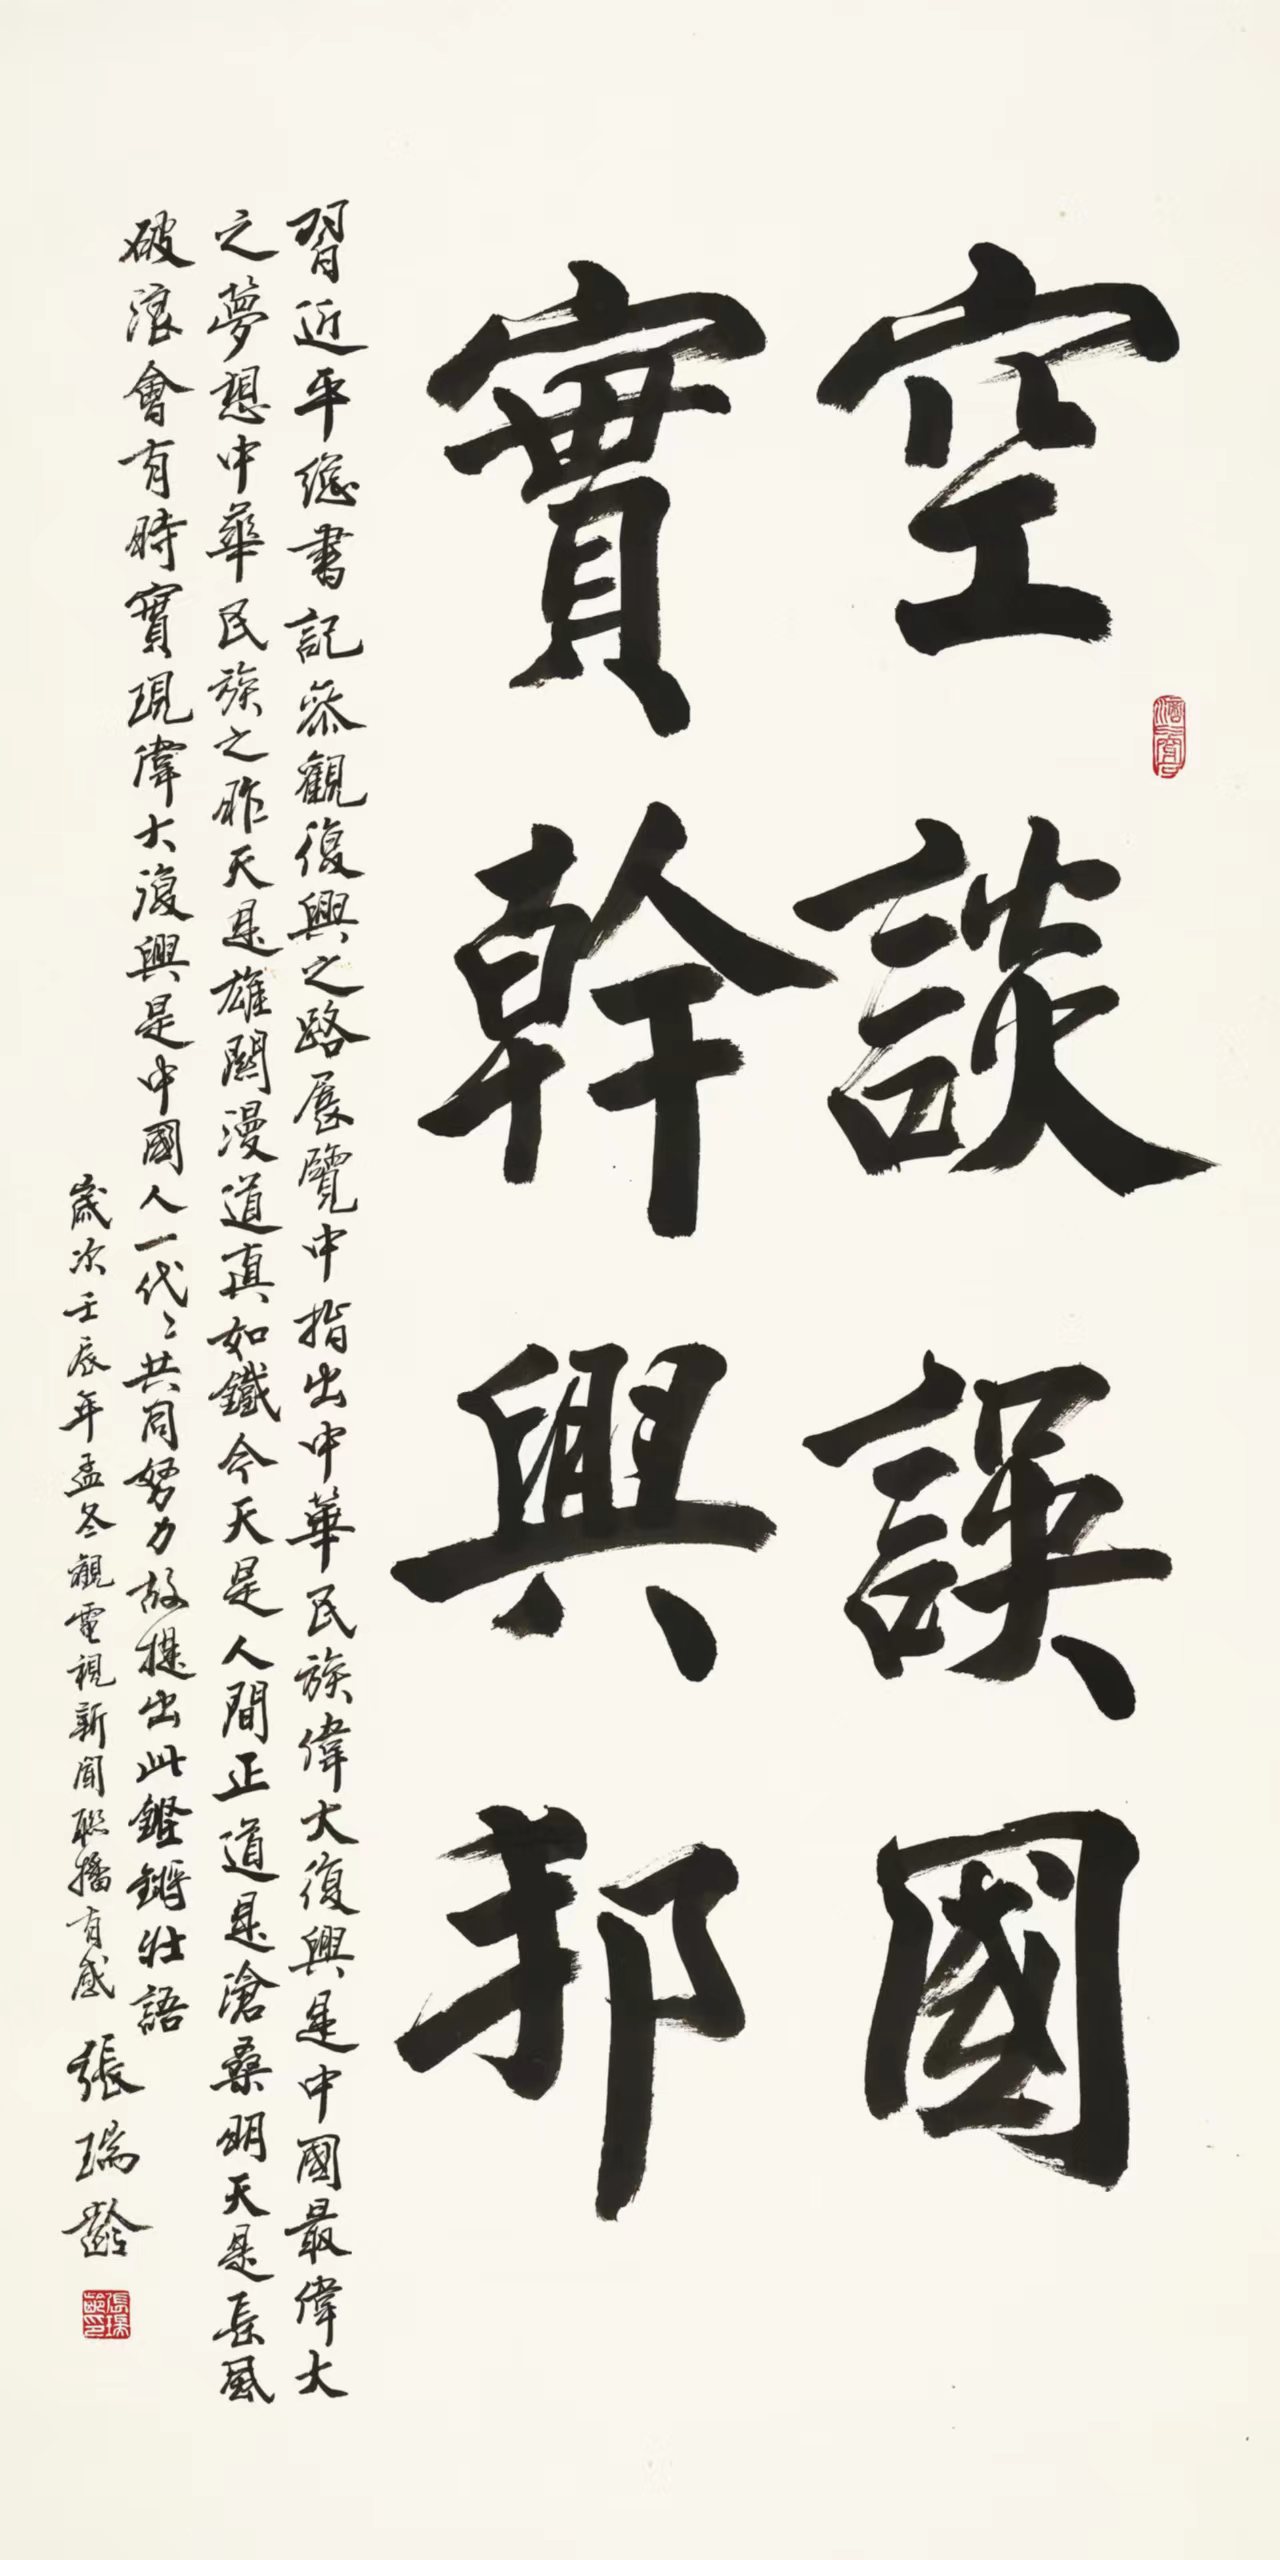 空談誤國
實幹興邦
習近平總書記參觀復興之路展覽中指出中華民族偉大復興是中國最偉大
之夢想中華民族之昨天是雄關漫道真如鐵今天是人間正道是滄桑明天是長風
破浪會有時實現偉大復興是中國人一代〻共同努力故提出此鏗鏘壯語
歲次壬辰年孟冬觀電視新聞聯播有感
張瑞齡
張瑞齡印